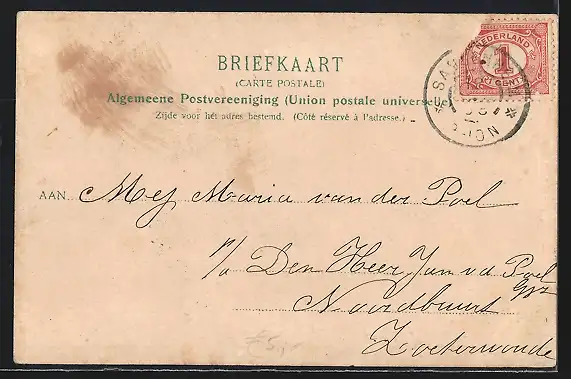 BRIEFKAART
(CARTE POSTALE)
Algemeene Postvereeniging (Union postale universelle)
Zijde voor hét adres bestemd. (Côté réservé à l'adresse.)
NEDERLAND
1
CENT
SAS
AAN Mej Maria van der Poel
p/a Den Heer Jan v d Poel
Noordbuurt
Zoeterwoude
£5,-